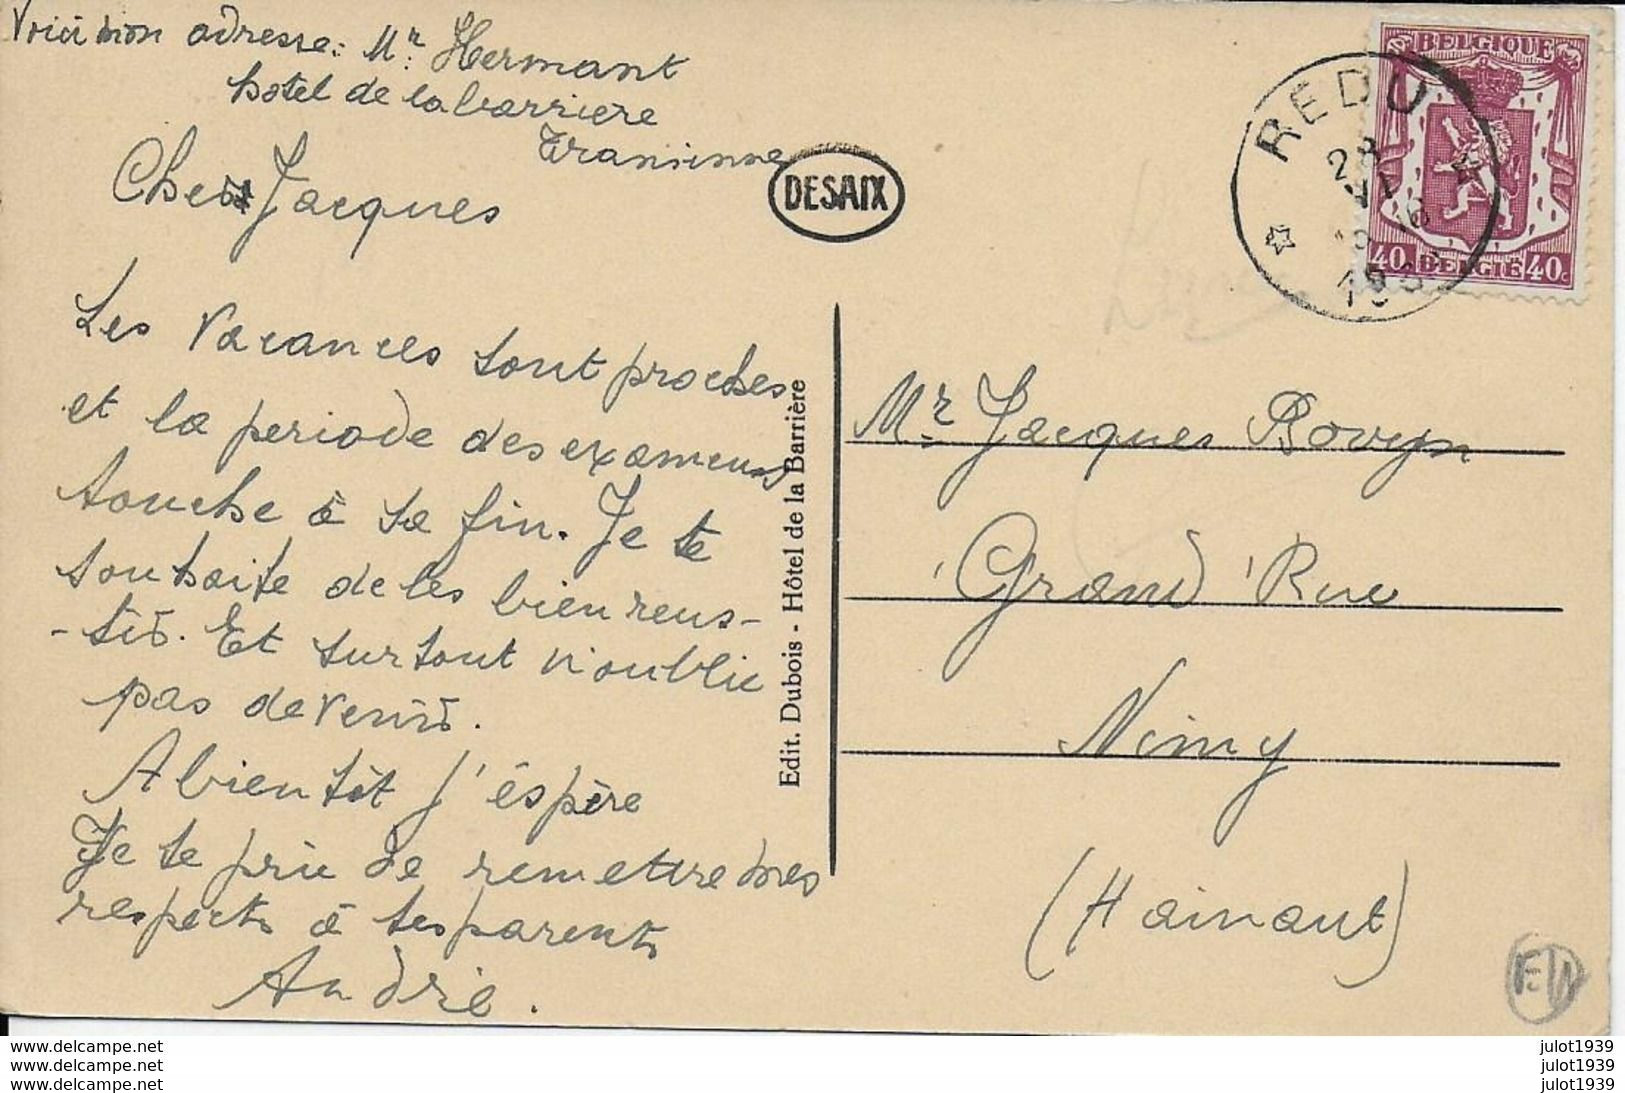 Voici mon adresse: Mr. Hermant
hotel de la barriere
Transinne
Cher Jacques
Les vacances sont proches
et la periode des examens
touche à sa fin. Je te
souhaite de les bien reus-
-sir. Et surtout n'oublie
pas de venir.
A bientôt j'éspère
Je te prie de remettre mes
respects à tes parents
André.
DESAIX
Edit. Dubois - Hôtel de la Barrière
REDU
28
BELGIQUE
40c BELGIË 40c
Mr Jacques
Grand 'Rue
Nimy
(Hainaut)
www.delcampe.net
www.delcampe.net
www.delcampe.net
julot1939
julot1939
julot1939